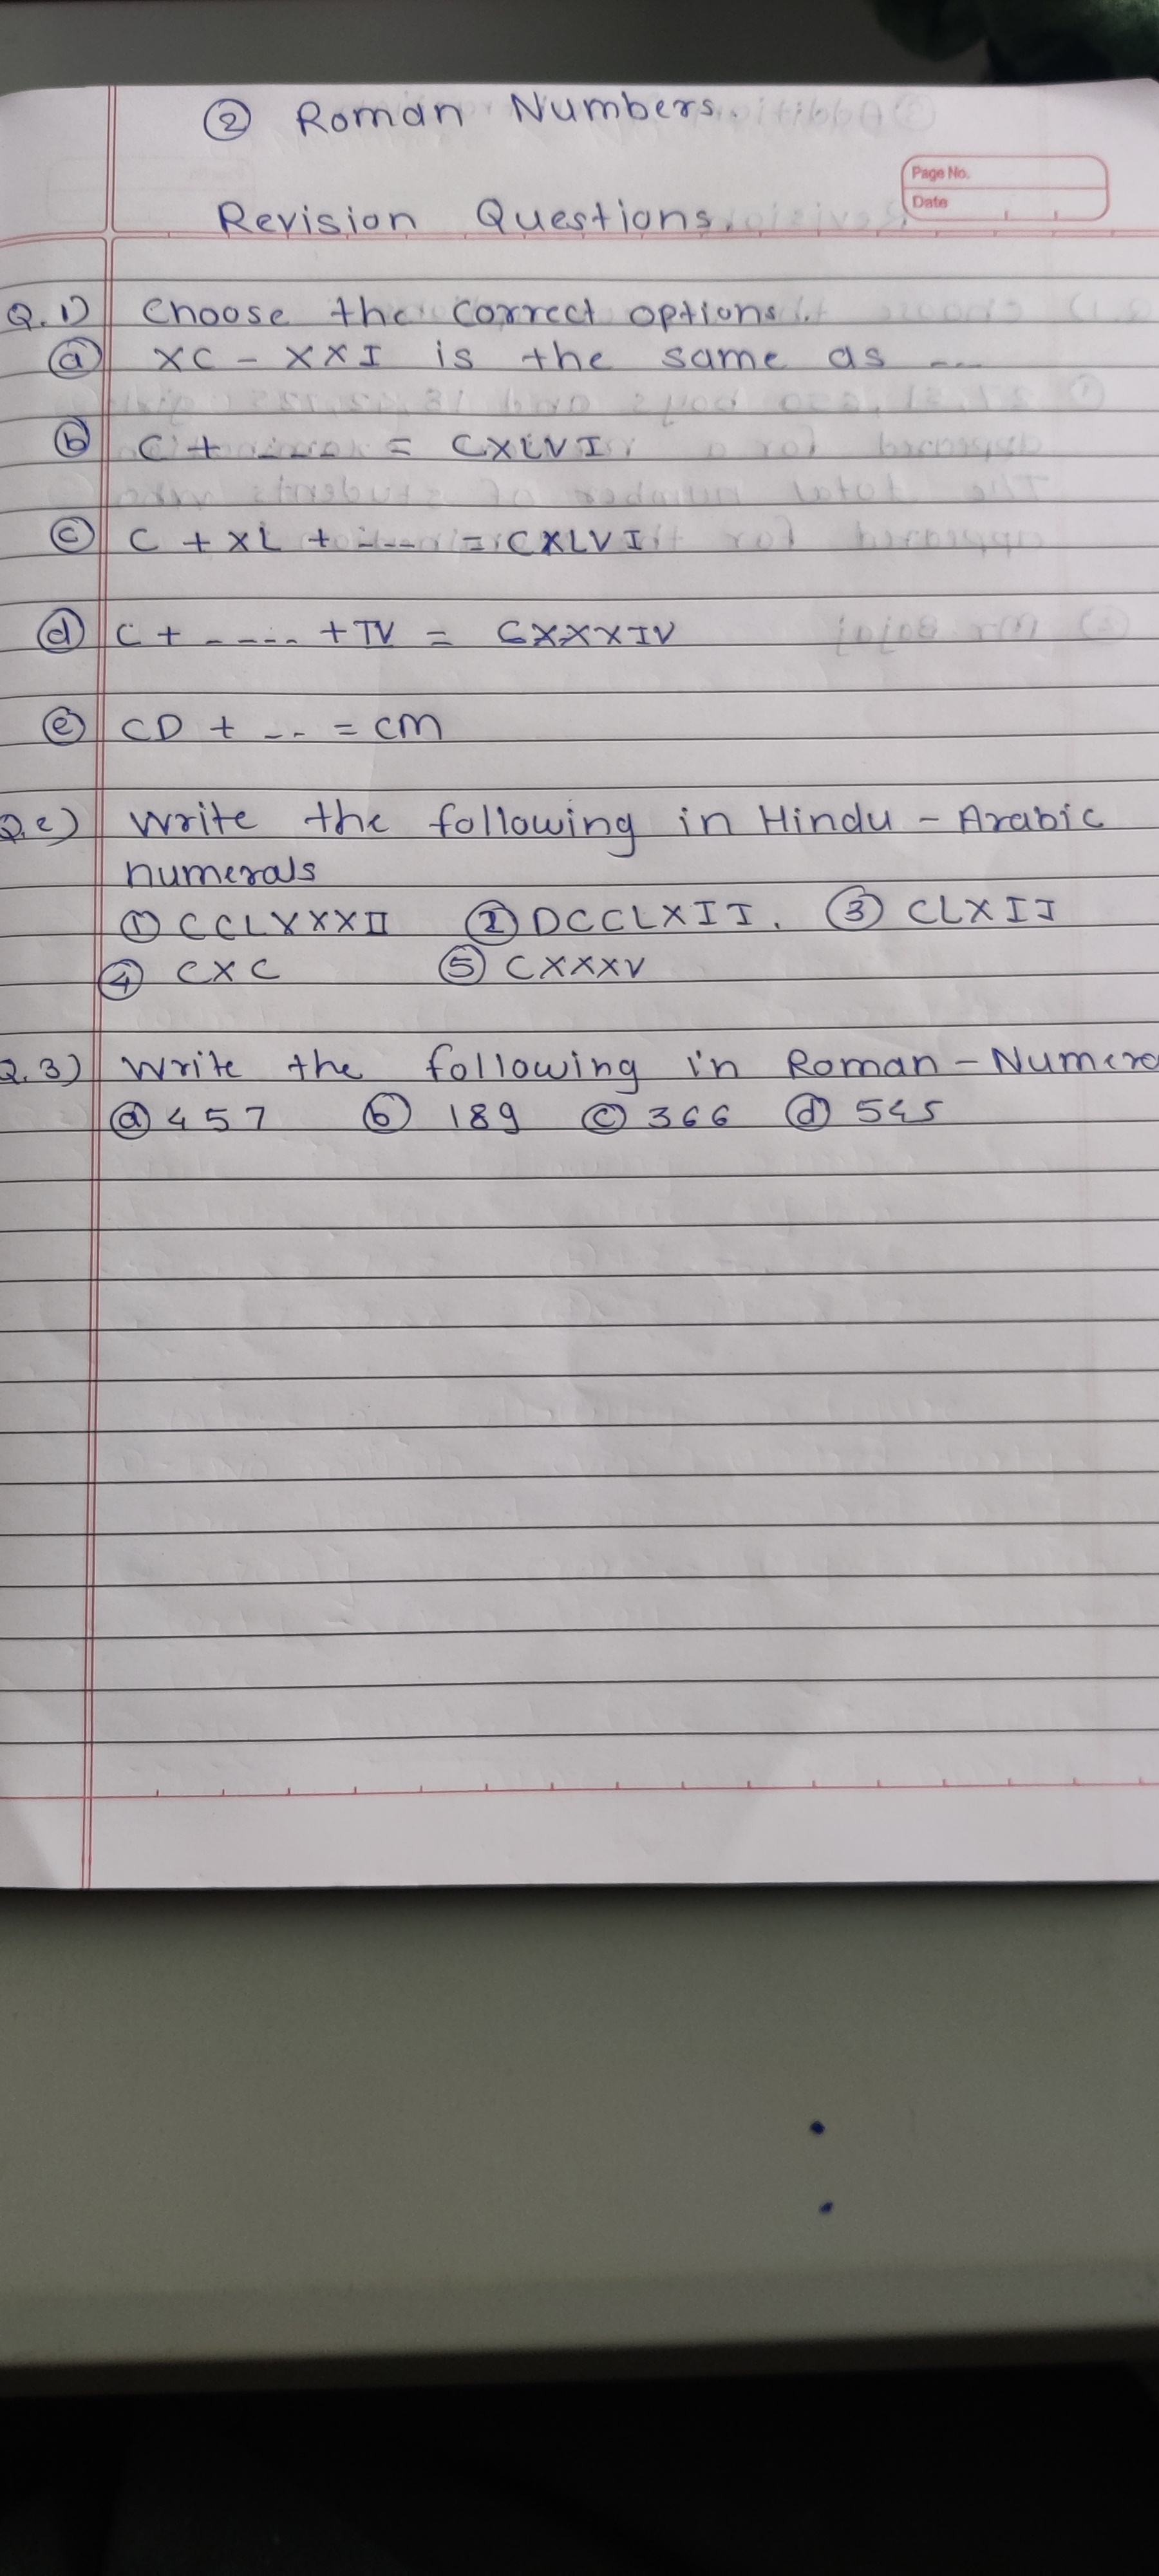 ② Roman Numbers.
Page No.
Date
Revision Questions.
Q.1) Choose the correct options.
ⓐ XC - XXI is the same as ---
ⓑ C + ---- = CXLVI
ⓒ C + XL + ---- = CXLVI
ⓓ C + ----- + IV = CXXXIV
ⓔ CD + -- = CM
Q.2) Write the following in Hindu - Arabic
numerals
① CCLXXXII ② DCCLXII. ③ CLXII
④ CXC ⑤ CXXXV
Q.3) Write the following in Roman - Numera
ⓐ 457 ⓑ 189 ⓒ 366 ⓓ 545